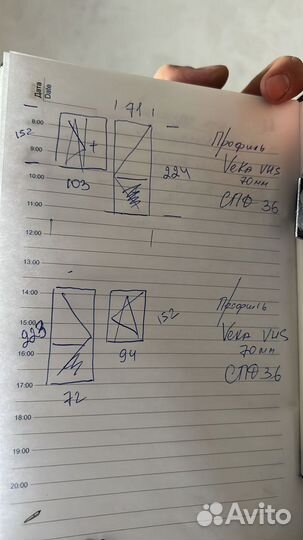 Дата
Date
71
8:00
152
9:00
10:00
11:00
103
224
Профиль
VEKA VHS
70мм
СПФ 36
12:00
13:00
14:00
15:00
16:00
17:00
223
152
94
72
Профиль
VEKA VHS
70мм.
СПФ 36
18:00
19:00
20:00
Avito